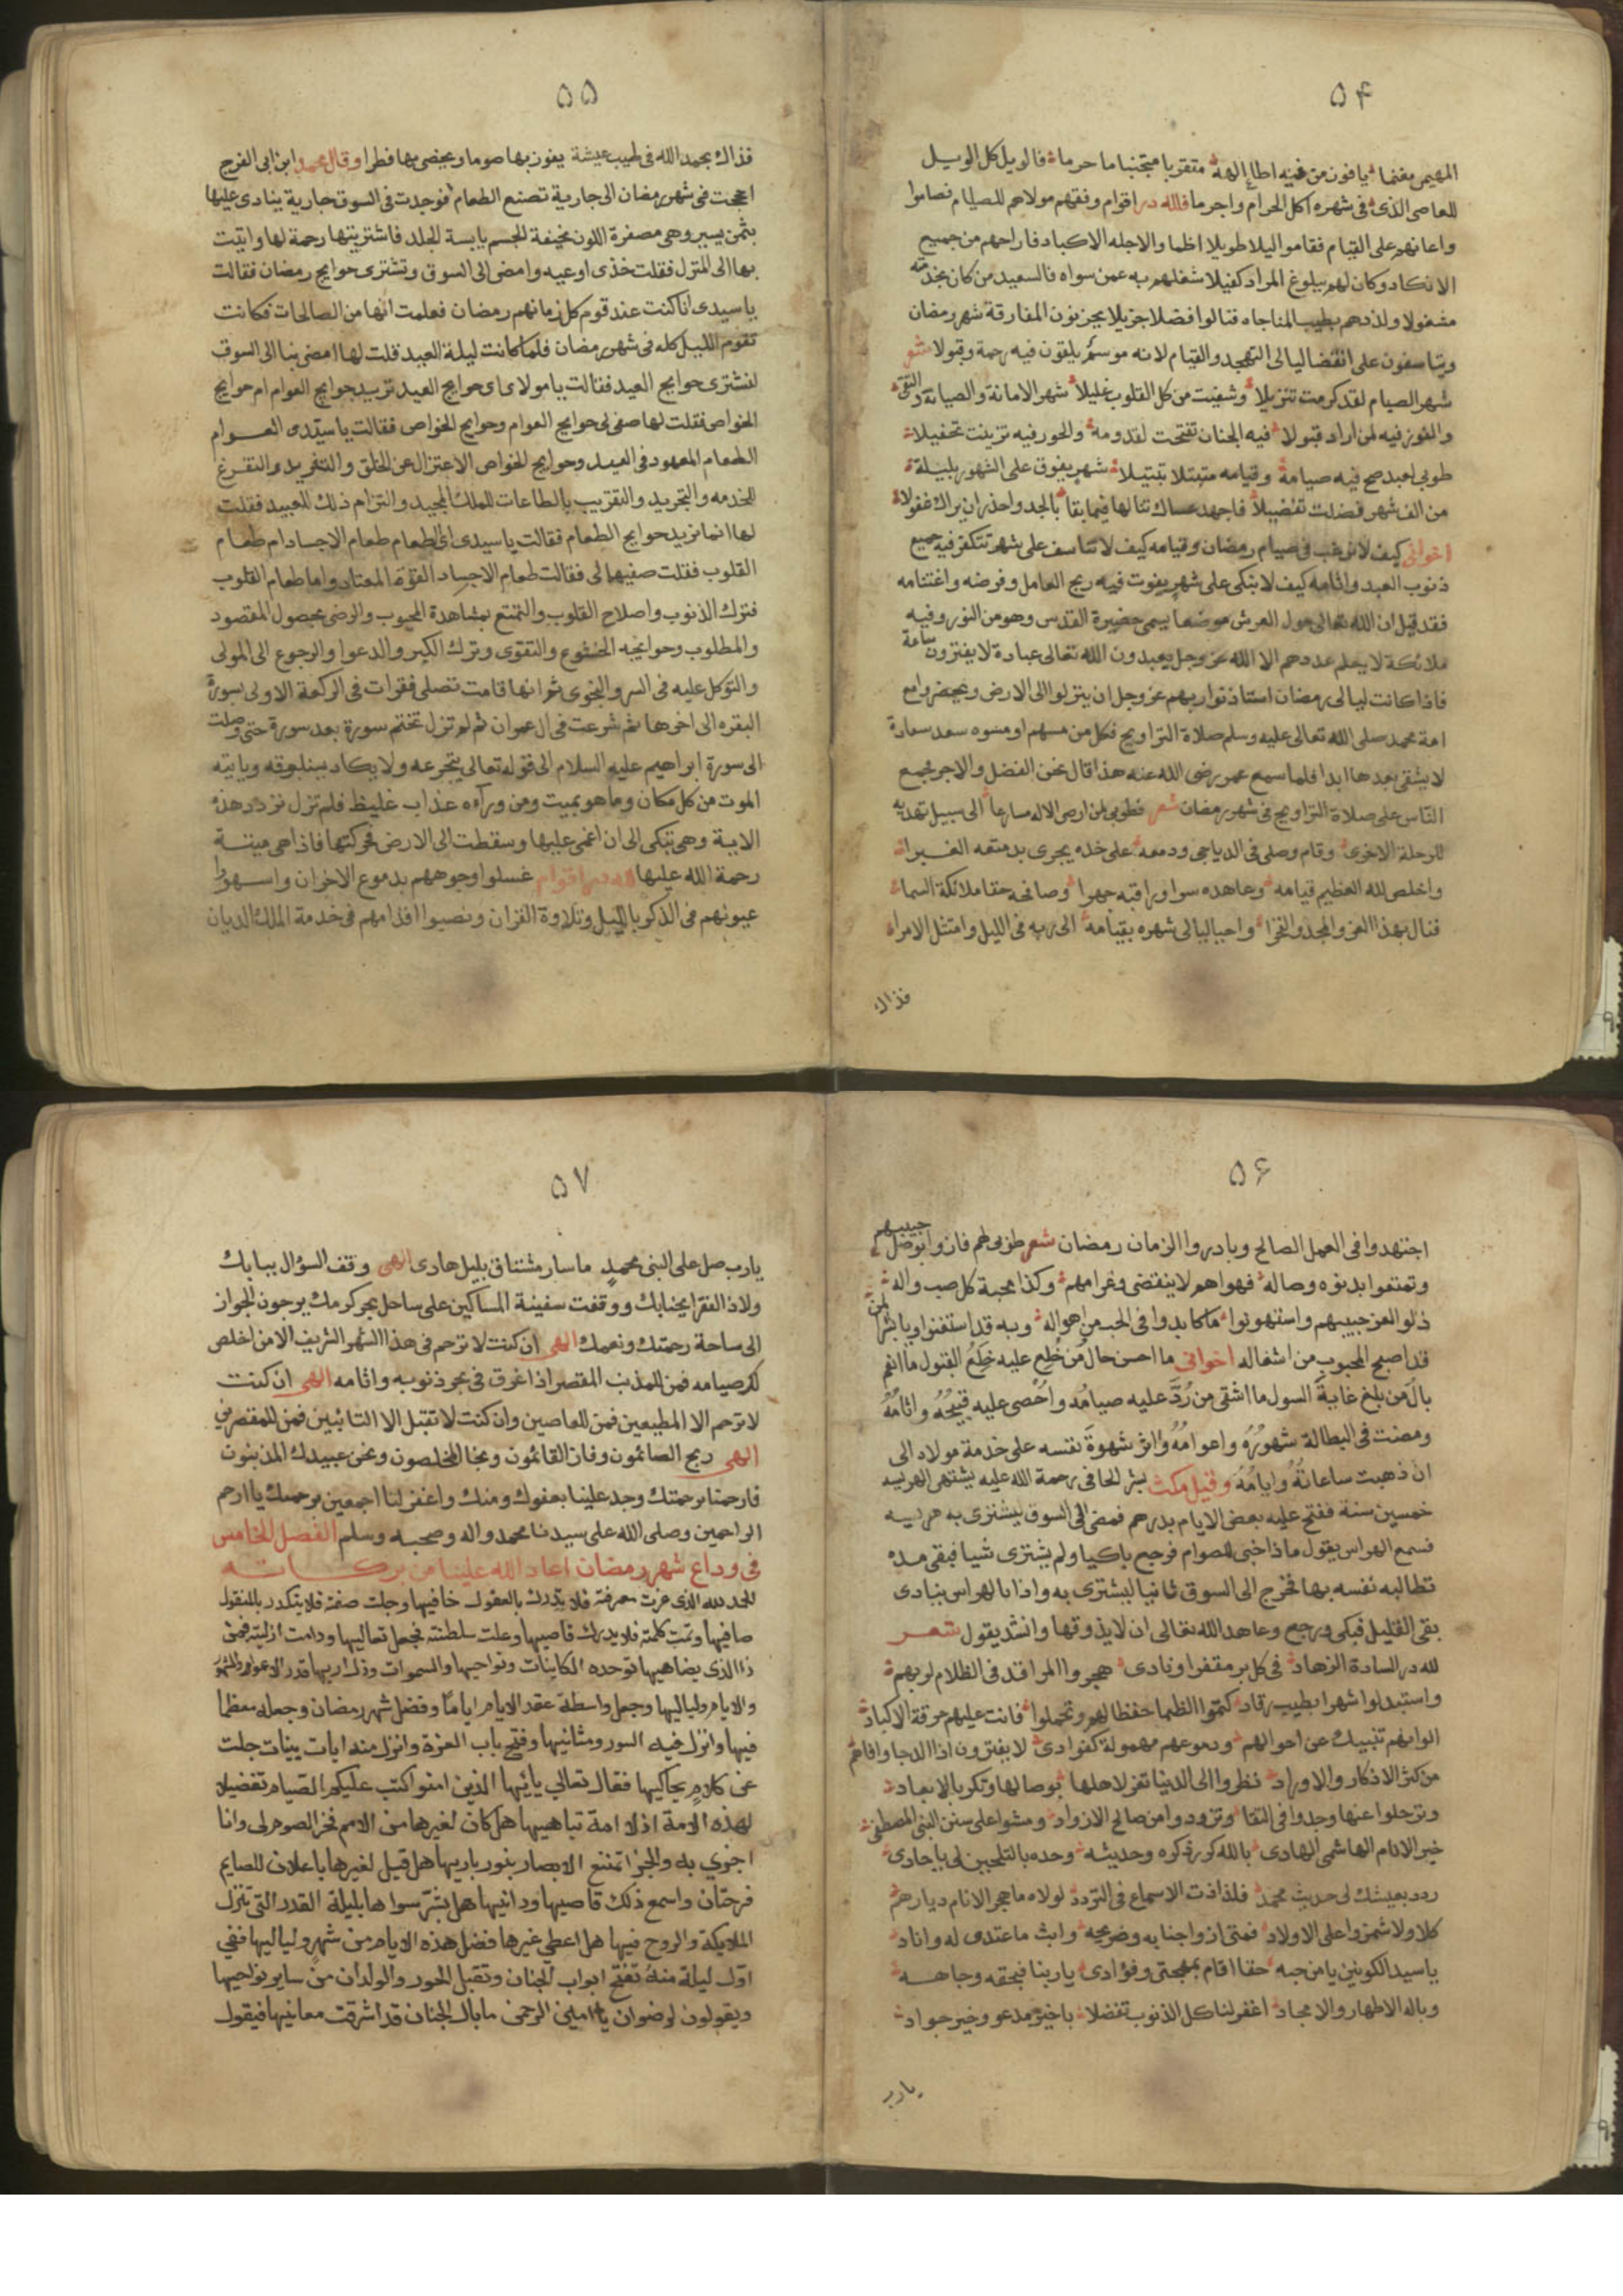 ۵۴
المهيمن مغنما يا فوز من فيه اطاع الهه متقربا متجنبا ما حرما فالويل كل الويل
للعاصى الذى فى شهره اكل الحرام واجرما فلله در اقوام وفقهم مولاهم للصيام فصاموا
واعانهم على القيام فقاموا ليلا طويلا اظما والاجله الاكباد فاراحهم من جميع
الانكاد وكان لهم ببلوغ المراد كفيلا شغلهم به عمن سواه فالسعيد من كان بخدمته
مشغولا ولذذهم بطيب المناجاه فنالوا فضلا جزيلا يحزنون المفارقة شهر رمضان
ويتاسفون على انقضا ليالى التهجد والقيام لانه موسم يلقون فيه رحمة وقبولا شعر
شهر الصيام لقد كرمت تنزيلا وشفيت من كل القلوب غليلا شهر الامانة والصيانة والتقى
والفوز فيه لمن اراد قبولا فيه الجنان تفتحت لقدومه والحور فيه تزينت تحفيلا
طوبى لعبد صح فيه صيامه وقيامه متبتلا تبتيلا شهر يفوق على الشهور بليلة
من الف شهر فضلت تفضيلا فاجهد عساك تنالها فيما بقا بالجد واحذر ان يراك غفولا
اخوانى كيف لا نرغب فى صيام رمضان وقيامه كيف لا نتاسف على شهر تتكفر فيه جميع
ذنوب العبد واثامه كيف لا نبكى على شهر يفوت فيه ربح العامل وفرضه واغتنامه
فقد قيل ان الله تعالى حول العرش موضعا يسمى حضيرة القدس وهو من النور وفيه
ملائكة لا يعلم عددهم الا الله عز وجل يعبدون الله تعالى عبادة لا يفترون ساعة
فاذا كانت ليالى رمضان استاذنوا ربهم عز وجل ان ينزلوا الى الارض ويحضروا مع
امة محمد صلى الله تعالى عليه وسلم صلاة التراويح فكل من مسهم او مسوه سعد سعادة
لا يشقى بعدها ابدا فلما سمع عمر رضى الله عنه هذا قال نحن الفضل والاجر فجمع
الناس على صلاة التراويح فى شهر رمضان شعر فطوبى لمن ارضى الاله مسارعا الى سبيل تهديه
للرحلة الاخرى وقام وصلى فى الدياجى ودمعه على خده يجرى بدمعته الغبرا
واخلص لله العظيم قيامه وعاهده سوا وراقبه جهرا وصافحه حقا ملائكة السما
فنال بهذا العز والمجد والفخرا واحيا ليالى شهره بقيامه الى ربه فى الليل وامتثل الامرا
فذاك
۵۵
فذاك بحمد الله فى طيب عيشة يفوز بها صوما ويحضى بها فطرا وقال محمد ابن ابى الفرج
احجت فى شهر رمضان الى جارية تصنع الطعام فوجدت فى السوق جارية ينادى عليها
بثمن يسير وهى مصفرة اللون نحيفة الجسم يابسة الجلد فاشتريتها رحمة لها واتيت
بها الى المنزل فقلت خذى اوعيه وامضى الى السوق وتشترى حوايج رمضان فقالت
يا سيدى انا كنت عند قوم كل زمانهم رمضان فعلمت انها من الصالحات فكانت
تقوم الليل كله فى شهر رمضان فلما كانت ليلة العيد قلت لها امضى بنا الى السوق
لنشترى حوايج العيد فقالت يا مولاى اى حوايج العيد تريد حوايج العوام ام حوايج
الخواص فقلت لها صفى لى حوايج العوام وحوايج الخواص فقالت يا سيدى العوام
الطعام المعهود فى العيد وحوايج الخواص الاعتزال عن الخلق والتفريد والتفرغ
للخدمه والتجريد والتقريب بالطاعات للملك المجيد والتزام ذلك للعبيد فقلت
لها انما نريد حوايج الطعام فقالت يا سيدى اى الطعام طعام الاجساد ام طعام
القلوب فقلت صفيها لى فقالت طعام الاجساد القوة المعتاد واما طعام القلوب
فترك الذنوب واصلاح القلوب والتمتع بمشاهدة المحبوب والرضى بحصول المقصود
والمطلوب وحوايجه الخشوع والتقوى وترك الكبر والدعوا والرجوع الى المولى
والتوكل عليه فى السر والنجوى ثم انها قامت تصلى فقرات فى الركعة الاولى بسورة
البقره الى اخرها ثم شرعت فى ال عمران ثم لم تزل تختم سورة بعد سورة حتى وصلت
الى سورة ابراهيم عليه السلام الى قوله تعالى يتجرعه ولا يكاد يسيغه وياتيه
الموت من كل مكان وما هو بميت ومن ورآءه عذاب غليظ فلم تزل تردد هذه
الاية وهى تبكى الى ان اغمى عليها وسقطت الى الارض فحركتها فاذا هى ميتة
رحمة الله عليها لله در اقوام غسلوا وجوههم بدموع الاحزان واسهروا
عيونهم فى الذكر بالليل وتلاوة القران ونصبوا اقدامهم فى خدمة الملك الديان
۵۶
اجتهدوا فى العمل الصالح وبادروا الزمان رمضان شعر طوبى لهم فازوا بوصل حبيبهم
وتمتعوا بدنوه وصاله فهواهم لا ينقضى وغرامهم وكذا محبة كل صب واله
ذلوا لعز حبيبهم واستهونوا ما كابدوا فى الحب من اهواله وبه قد استغنوا ويا بشرا لمن
قد اصبح المحبوب من اشغاله اخوانى ما احسن حال من خلع عليه خلع القبول ما انعم
بال من بلغ غاية السول ما اشقى من رد عليه صيامه واحصى عليه قبيحه واثامه
ومضت فى البطالة شهوره واعوامه واثر شهوة نفسه على خدمة مولاه الى
ان ذهبت ساعاته وايامه وقيل مكث بشر الحافى رحمة الله عليه يشتهى الهريسه
خمسين سنة ففتح عليه بعض الايام بدرهم فمضى الى السوق يشترى به هريسه
فسمع الهراس يقول ماذا خبى للصوام فرجع باكيا ولم يشترى شيا فبقى مده
تطالبه نفسه بها فخرج الى السوق ثانيا ليشترى به واذا بالهراس ينادى
بقى القليل فبكى ورجع وعاهد الله تعالى ان لا يذوقها وانشد يقول شعر
لله در السادة الزهاد فى كل بر مقفر او نادى هجروا المراقد فى الظلام لربهم
واستبدلوا شهرا بطيب رقاد كتموا الظما حفظا لهم وتحملوا فانت عليهم حرقة الاكباد
الوانهم تنبيك عن احوالهم ودموعهم مهمولة كغوادى لا يفترون اذا الدجا وافاهم
من كثر الاذكار والاوراد نظروا الى الدنيا تغر لاهلها بوصالها وتكر بالابعاد
وترحلوا عنها وجدوا فى التقا وتزودوا من صالح الازواد ومشوا على سنن النبى المصطفى
خير الانام الهاشمى الهادى بالله كرر ذكره وحديثه وحده بالتلحين لى يا حادى
ردد بعيشك لى حديث محمد فلذاذت الاسماع فى الترداد لولاه ما هجر الانام ديارهم
كلا ولا شمزوا على الاولاد فمتى ازوا جنابه وضريحه وابث ما عندى له وانادى
يا سيد الكونين يا من حبه حقا اقام بمهجتى وفؤادى يا ربنا فبحقه وجاهه
وباله الاطهار والامجاد اغفر لنا كل الذنوب تفضلا يا خير مدعو وخير جواد
يارب
۵۷
يا رب صل على النبى محمد ما سار مشتاق بليل حادى الهى وقف السؤال ببابك
ولاذ الفقرا بجنابك ووقفت سفينة المساكين على ساحل بحر كرمك يرجون الجواز
الى ساحة رحمتك ونعمك الهى ان كنت لا ترحم فى هذا الشهر الشريف الا من اخلص
لك صيامه فمن للمذنب المقصر اذا غرق فى بحر ذنوبه واثامه الهى ان كنت
لا ترحم الا المطيعين فمن للعاصين وان كنت لا تقبل الا التائبين فمن للمقصرين
الهى ربح الصائمون وفاز القائمون ونجا المخلصون ونحن عبيدك المذنبون
فارحمنا برحمتك وجد علينا بعفوك ومنك واغفر لنا اجمعين برحمتك يا ارحم
الراحمين وصلى الله على سيدنا محمد واله وصحبه وسلم الفصل الخامس
فى وداع شهر رمضان اعاد الله علينا من بركاته
الحمد لله الذى عزت معرفته فلا يدرك بالعقول خافيها وجلت صفته فلا يتكدر بالنقول
صافيها وتمت كلمته فلا يدرك قاصيها وعلت سلطنته فجعل تعاليها ودامت ازليته فمن
ذا الذى يضاهيها توحده الكاينات ونواحيها والسموات وذك اريها قدر الاعوام والشهور
والايام ولياليها وجعل واسطة عقد الايام اياما وفضل شهر رمضان وجعله معظما
فيها وانزل فيه السور ومثانيها وفتح باب العزة وانزل منه ايات بينات جلت
عن كلام يحاكيها فقال تعالى يا ايها الذين امنوا كتب عليكم الصيام تفضيلا
لهذه الامة اذ لا امة تباهيها هل كان لغيرها من الامم فخر الصوم لى وانا
اجزي به والجزا تمتع الابصار بنور باريها هل قيل لغيرها باعلان للصايم
فرحتان واسمع ذلك قاصيها ودانيها هل بشر سواها بليلة القدر التى تنزل
الملايكة والروح فيها هل اعطي غيرها فضل هذه الايام من شهر ولياليها ففي
اول ليلة منه تفتح ابواب الجنان وتقبل الحور والولدان من ساير نواحيها
ويقولون لرضوان يا امين الرحمن ما بال الجنان قد اشرقت معانيها فيقول